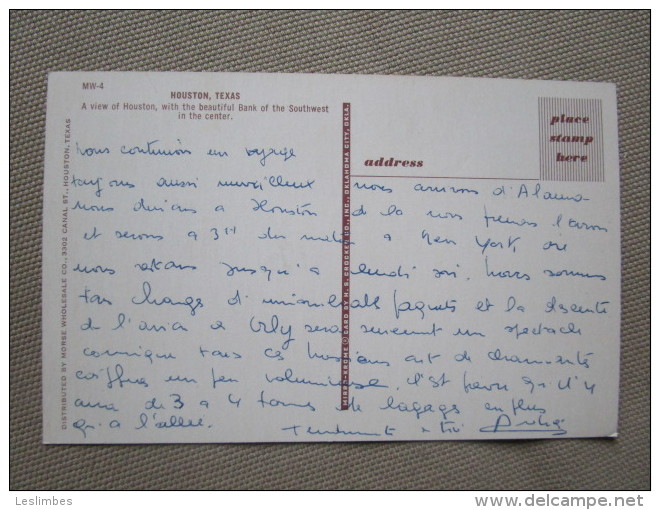 MW-4
HOUSTON, TEXAS
A view of Houston, with the beautiful Bank of the Southwest
in the center.
place
stamp
here
address
DISTRIBUTED BY MORSE WHOLESALE CO., 3302 CANAL ST., HOUSTON, TEXAS
MIRRO-KROME ® CARD BY H. S. CROCKER CO., INC., OKLAHOMA CITY, OKLA.
nous continuons un voyage
toujours aussi merveilleux nous arrivons d'Alamo
nous dinons a Houston de la nous prenons l'avion
et serons a 3 du matin a New York, ou
nous restons jusqu'a lundi soir. nous sommes
tous charges d' paquets et la descente
de l'avion a Orly sera surement un spectacle
comique tous ces messieurs ont de charmantes
coiffures un peu volumineuse. il y
aura de 3 a 4 tonnes de bagages en plus
qu'a l'allee.
Tendrement a toi
Leslimbes
www.delcampe.net